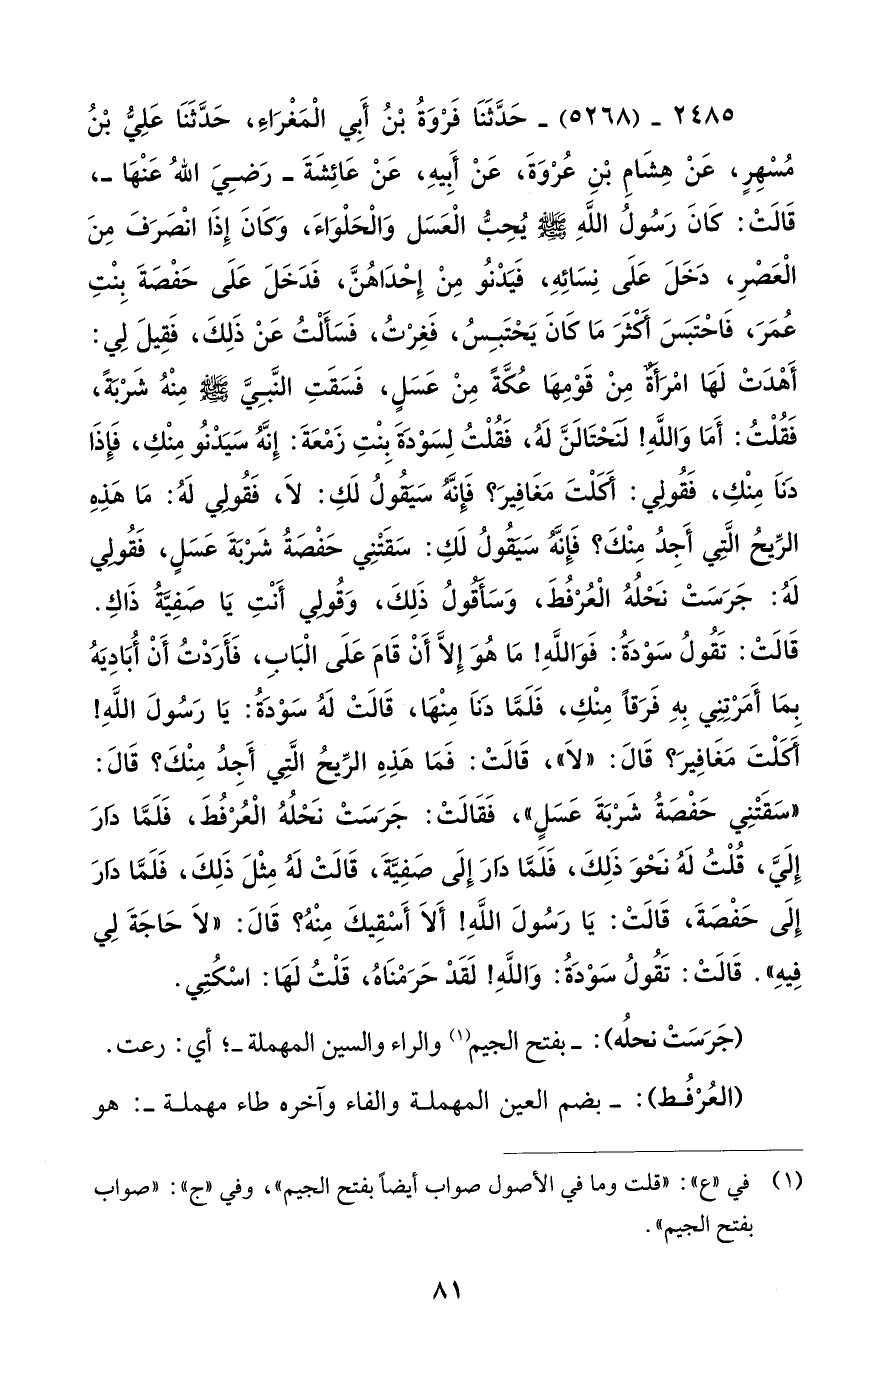 ٢٤٨٥ ـ (٥٢٦٨) ـ حَدَّثَنَا فَرْوَةُ بْنُ أَبِي الْمَغْرَاءِ، حَدَّثَنَا عَلِيُّ بْنُ
مُسْهِرٍ، عَنْ هِشَامِ بْنِ عُرْوَةَ، عَنْ أَبِيهِ، عَنْ عَائِشَةَ ـ رَضِيَ اللهُ عَنْهَا ـ،
قَالَتْ: كَانَ رَسُولُ اللَّهِ ﷺ يُحِبُّ الْعَسَلَ وَالْحَلْوَاءَ، وَكَانَ إِذَا انْصَرَفَ مِنَ
الْعَصْرِ، دَخَلَ عَلَى نِسَائِهِ، فَيَدْنُو مِنْ إِحْدَاهُنَّ، فَدَخَلَ عَلَى حَفْصَةَ بِنْتِ
عُمَرَ، فَاحْتَبَسَ أَكْثَرَ مَا كَانَ يَحْتَبِسُ، فَغِرْتُ، فَسَأَلْتُ عَنْ ذَلِكَ، فَقِيلَ لِي:
أَهْدَتْ لَهَا امْرَأَةٌ مِنْ قَوْمِهَا عُكَّةً مِنْ عَسَلٍ، فَسَقَتِ النَّبِيَّ ﷺ مِنْهُ شَرْبَةً،
فَقُلْتُ: أَمَا وَاللَّهِ! لَنَحْتَالَنَّ لَهُ، فَقُلْتُ لِسَوْدَةَ بِنْتِ زَمْعَةَ: إِنَّهُ سَيَدْنُو مِنْكِ، فَإِذَا
دَنَا مِنْكِ، فَقُولِي: أَكَلْتَ مَغَافِيرَ؟ فَإِنَّهُ سَيَقُولُ لَكِ: لاَ، فَقُولِي لَهُ: مَا هَذِهِ
الرِّيحُ الَّتِي أَجِدُ مِنْكَ؟ فَإِنَّهُ سَيَقُولُ لَكِ: سَقَتْنِي حَفْصَةُ شَرْبَةَ عَسَلٍ، فَقُولِي
لَهُ: جَرَسَتْ نَحْلُهُ الْعُرْفُطَ، وَسَأَقُولُ ذَلِكَ، وَقُولِي أَنْتِ يَا صَفِيَّةُ ذَاكِ.
قَالَتْ: تَقُولُ سَوْدَةُ: فَوَاللَّهِ! مَا هُوَ إِلاَّ أَنْ قَامَ عَلَى الْبَابِ، فَأَرَدْتُ أَنْ أُبَادِيَهُ
بِمَا أَمَرْتِنِي بِهِ فَرَقاً مِنْكِ، فَلَمَّا دَنَا مِنْهَا، قَالَتْ لَهُ سَوْدَةُ: يَا رَسُولَ اللَّهِ!
أَكَلْتَ مَغَافِيرَ؟ قَالَ: «لاَ»، قَالَتْ: فَمَا هَذِهِ الرِّيحُ الَّتِي أَجِدُ مِنْكَ؟ قَالَ:
«سَقَتْنِي حَفْصَةُ شَرْبَةَ عَسَلٍ»، فَقَالَتْ: جَرَسَتْ نَحْلُهُ الْعُرْفُطَ، فَلَمَّا دَارَ
إِلَيَّ، قُلْتُ لَهُ نَحْوَ ذَلِكَ، فَلَمَّا دَارَ إِلَى صَفِيَّةَ، قَالَتْ لَهُ مِثْلَ ذَلِكَ، فَلَمَّا دَارَ
إِلَى حَفْصَةَ، قَالَتْ: يَا رَسُولَ اللَّهِ! أَلاَ أَسْقِيكَ مِنْهُ؟ قَالَ: «لاَ حَاجَةَ لِي
فِيهِ». قَالَتْ: تَقُولُ سَوْدَةُ: وَاللَّهِ! لَقَدْ حَرَمْنَاهُ، قُلْتُ لَهَا: اسْكُتِي.
(جَرَسَتْ نحلُه): ـ بفتح الجيم(١) والراء والسين المهملة ـ؛ أي: رعت.
(العُرْفُط): ـ بضم العين المهملة والفاء وآخره طاء مهملة ـ: هو
(١) في «ع»: «قلت وما في الأصول صواب أيضاً بفتح الجيم»، وفي «ج»: «صواب
بفتح الجيم».
٨١